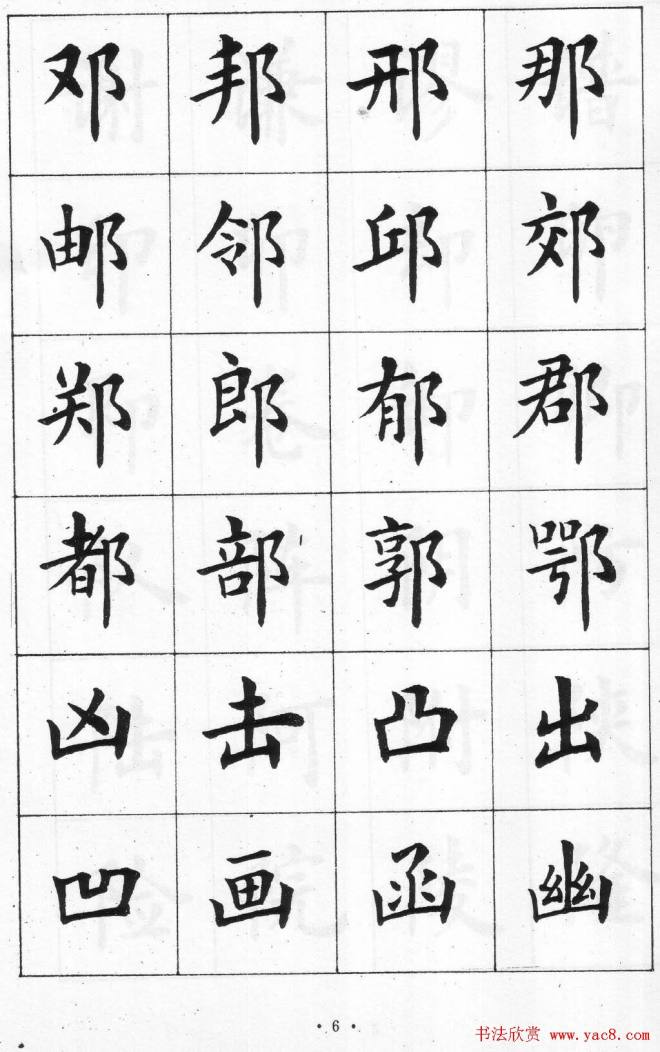 邓 邦 邢 那
邮 邻 邱 郊
郑 郎 郁 郡
都 部 郭 鄂
凶 击 凸 出
凹 画 函 幽
· 6 ·
书法欣赏 www.yac8.com